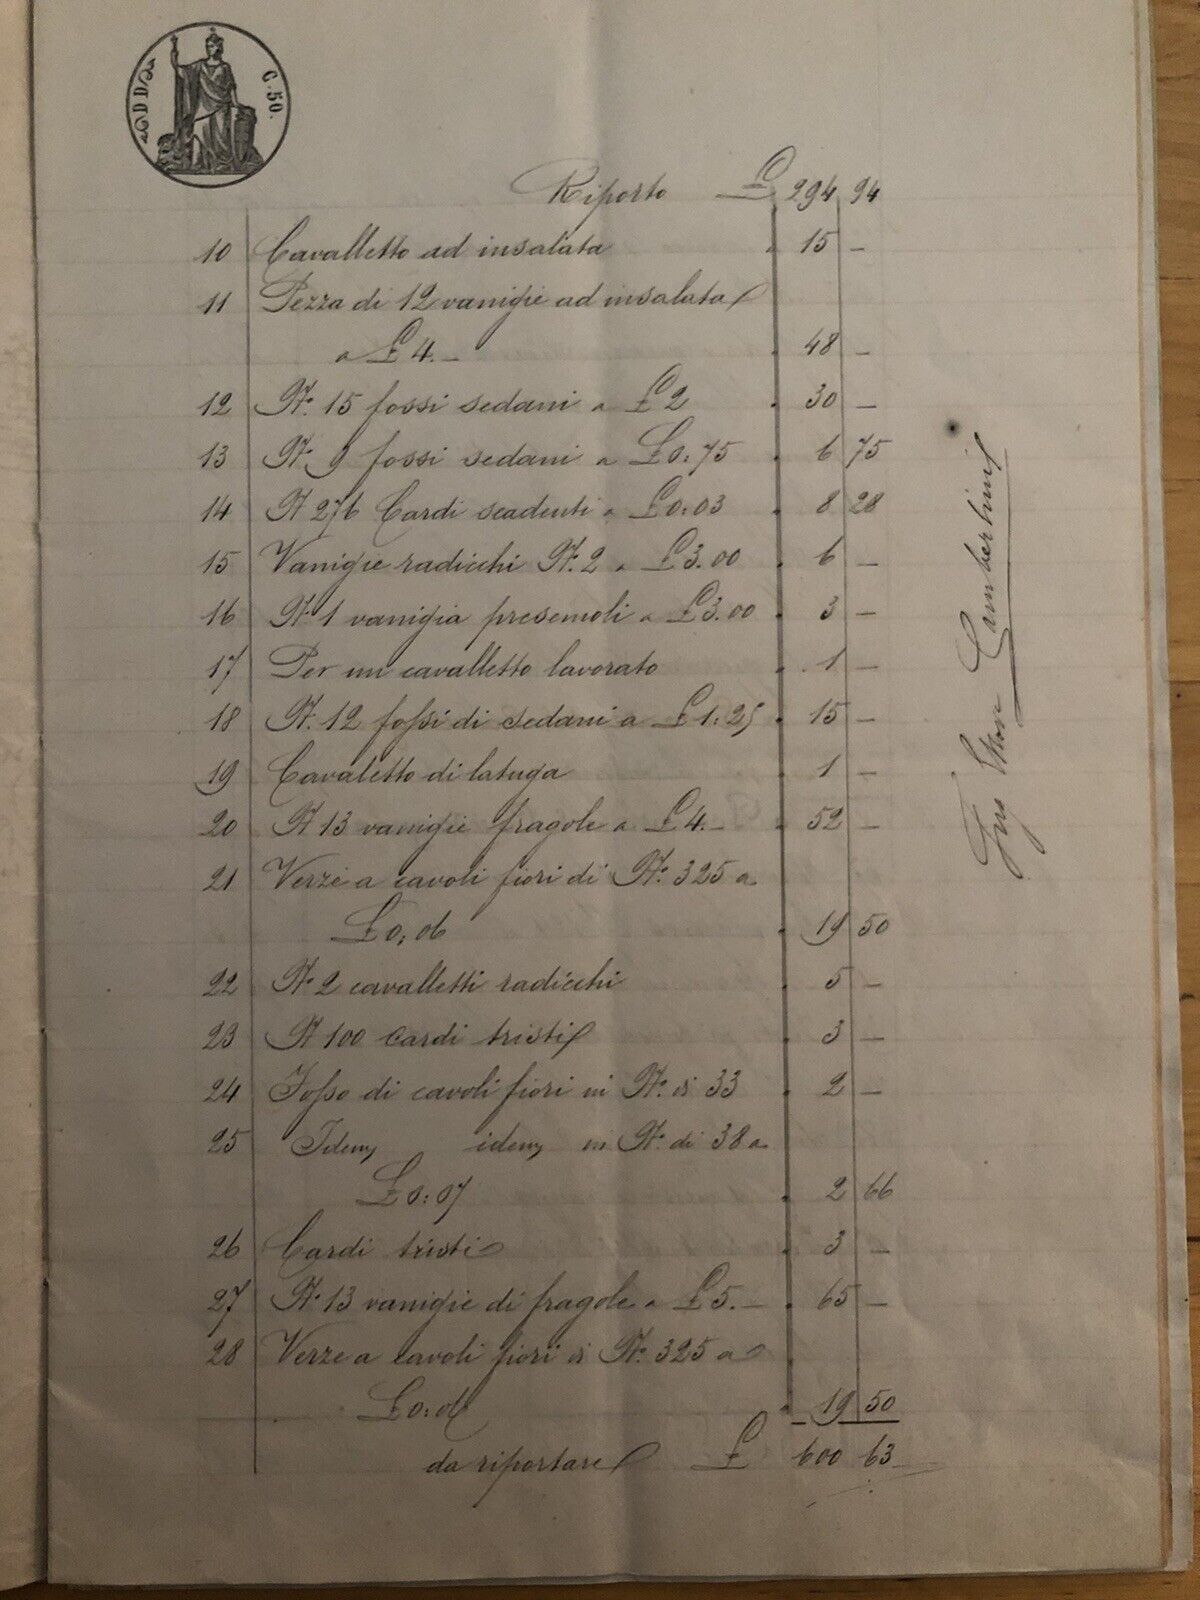 C. 50.
Riporto £ 294 94
10 Cavalletto ad insalata " 15 —
11 Pezza di 12 vanigie ad insalata
a £ 4. — " 48 —
12 N.° 15 fossi sedani a £ 2 " 30 —
13 N.° 9 fossi sedani a £ 0:75 " 6 75
14 N 276 Cardi scadenti a £ 0:03 " 8 28
15 Vanigie radicchi N.° 2 a £ 3.00 " 6 —
16 N.° 1 vanigia presemoli a £ 3.00 " 3 —
17 Per un cavalletto lavorato " 1 —
18 N. 12 fossi di sedani a £ 1:25 " 15 —
19 Cavaletto di latuga " 1 —
20 N 13 vanigie fragole a £ 4. — " 52 —
21 Verze a cavoli fiori di N.° 325 a
£ 0:06 " 19 50
22 N.° 2 cavalletti radicchi " 5 —
23 N 100 Cardi tristi " 3 —
24 Fosso di cavoli fiori in N.° di 33 " 2 —
25 Idem idem in N.° di 38 a
£ 0:07 " 2 66
26 Cardi tristi " 3 —
27 N.° 13 vanigie di fragole a £ 5. — " 65 —
28 Verze a cavoli fiori di N.° 325 a
£ 0:06 " 19 50
da riportare £ 600 63
Lambertini